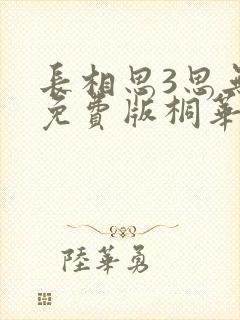 長相思3思無
免費版桐華
陸華勇